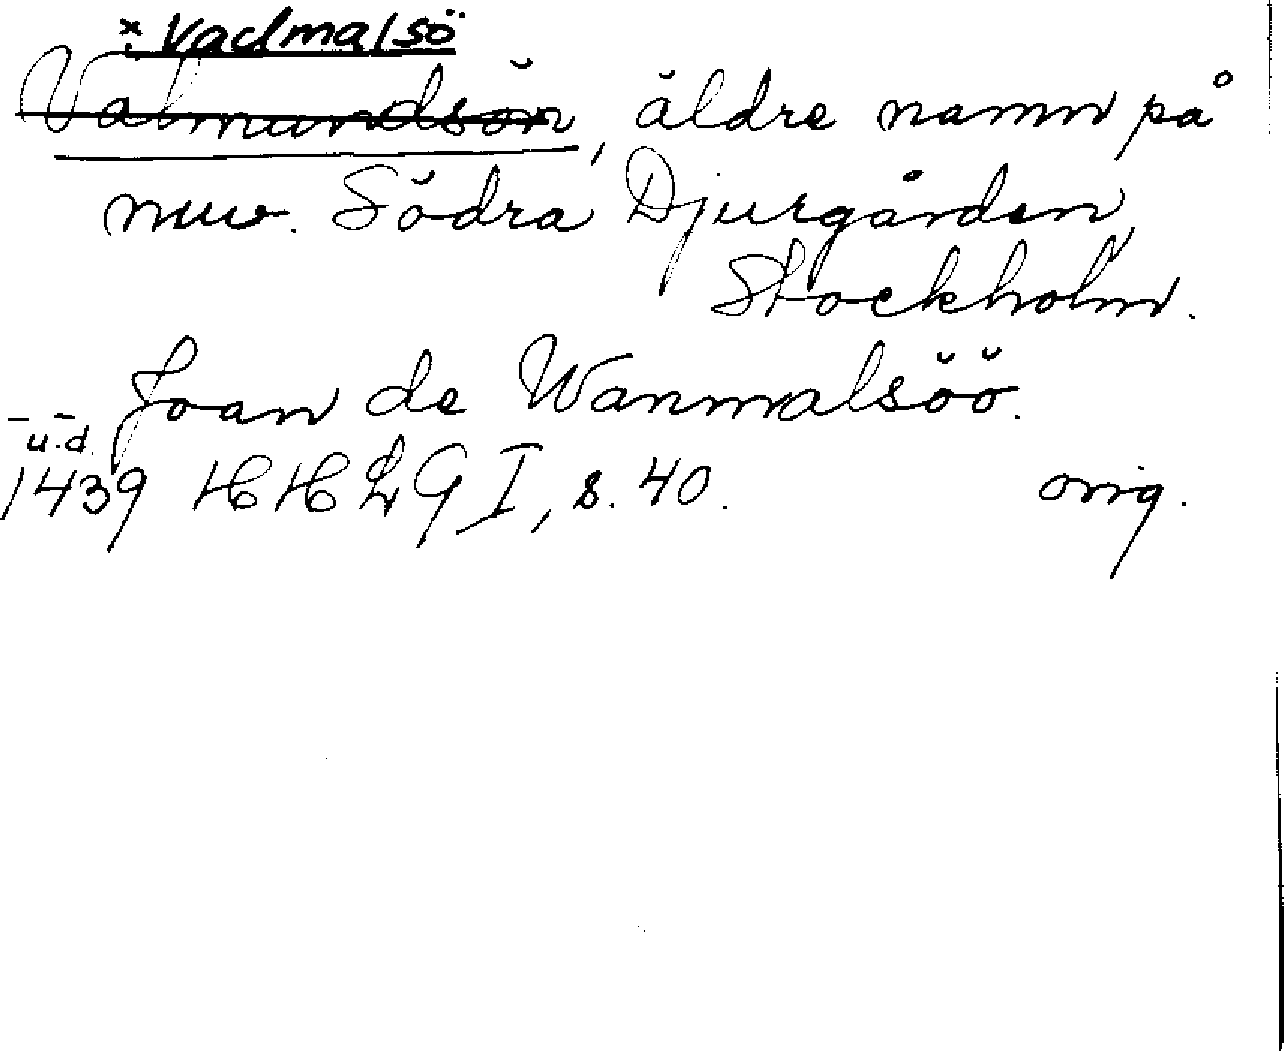 ×. Vadmalsö
Valmundsön, äldre namn på
nuv. Södra Djurgården,
Stockholm.
Joan de Wanmalsöö.
– u.d. –
1439 HHLG I, s. 40. orig.